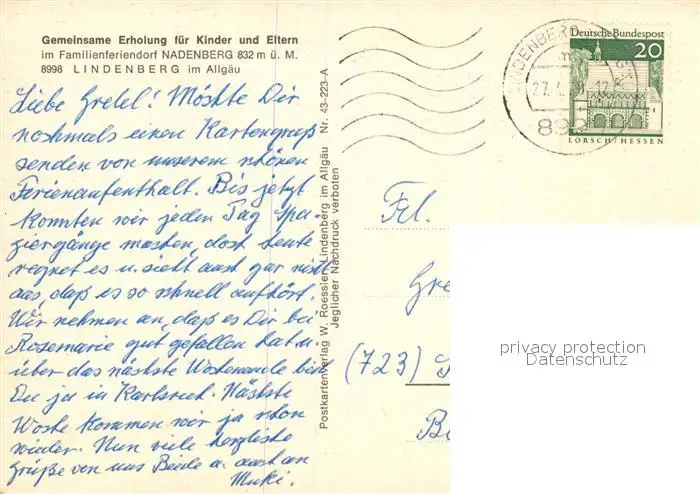 Gemeinsame Erholung für Kinder und Eltern
im Familienferiendorf NADENBERG 832 m ü. M.
8998 LINDENBERG im Allgäu
Liebe Gretel! Möchte Dir
nochmals einen Kartengruß
senden von unserem schönen
Ferienaufenthalt. Bis jetzt
konnten wir jeden Tag Spa-
ziergänge machen, doch heute
regnet es u. sieht auch gar nicht
aus, daß es so schnell aufhört.
Wir nehmen an, daß es Dir bei
Rosemarie gut gefallen hat u.
über das nächste Wochenende bist
Du ja in Karlsruh. Nächste
Woche kommen wir ja schon
wieder. Nun viele herzliche
Grüße von uns Beide u. auch an
Mucki.
Postkartenverlag W. Roessler, Lindenberg im Allgäu Nr. 43-223-A
Jeglicher Nachdruck verboten
LINDENBERG
27.
Deutsche Bundespost
20
LORSCH/HESSEN
Frl.
Gre
(723)
privacy protection
Datenschutz